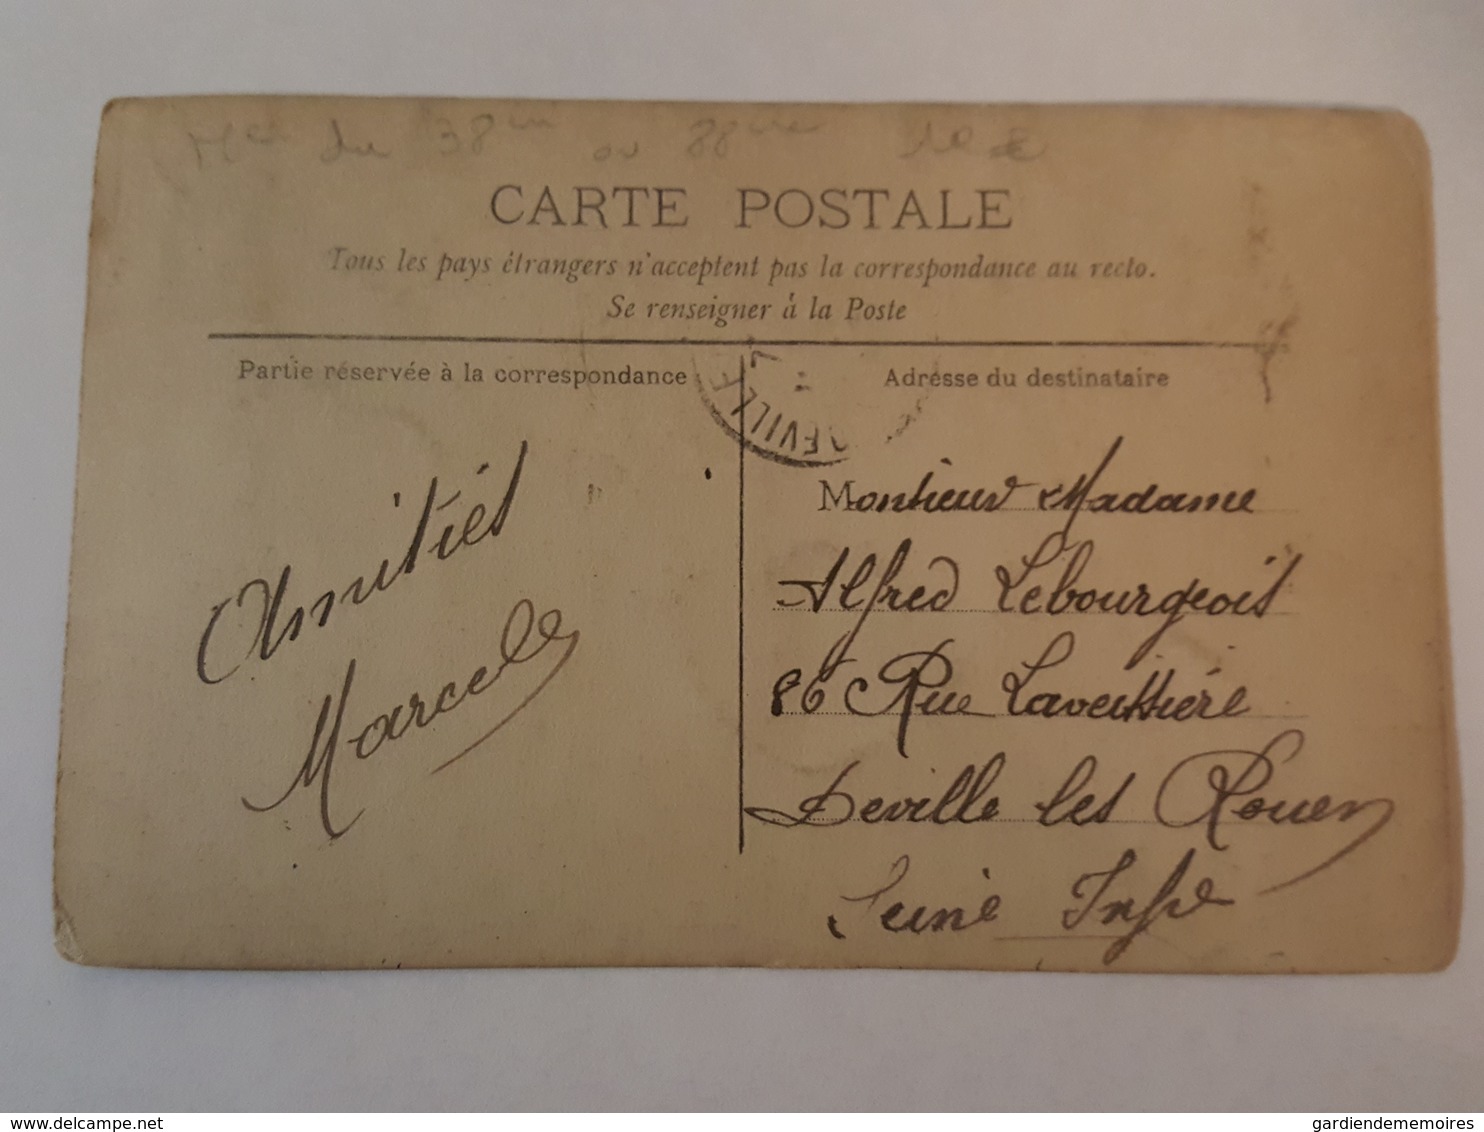 du 38 ou 88
CARTE POSTALE
Tous les pays étrangers n'acceptent pas la correspondance au recto.
Se renseigner à la Poste
Partie réservée à la correspondance
Adresse du destinataire
DEVILLE
Amitiés
Marcel
Monsieur & Madame
Alfred Lebourgeois
86 Rue Laveissière
Deville les Rouen
Seine Infre
delcampe.net
gardiendememoires